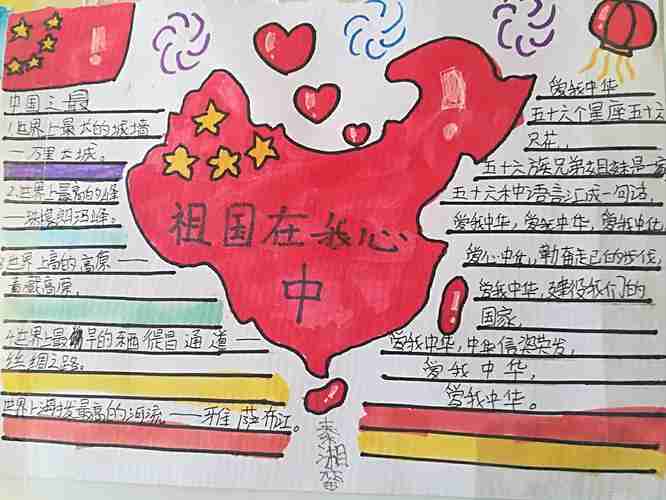 中国之最
1.世界上最长的城墙
—万里长城。
2.世界上最高的山峰
—珠穆朗玛峰。
3世界上高的高原——
青藏高原。
4.世界上最早的东西 通道——
丝绸之路。
世界上海拔最高的河流——雅
祖国在我心
中
爱我中华
五十六个星座五十六
只花,
五十六族兄弟姐妹是一
五十六种语言汇成一句话,
爱我中华,爱我中华,爱我中华
爱我中华,
爱我中华,建设我们的
国家,
爱我中华,中华
爱我中华,
爱我中华。
秦湘